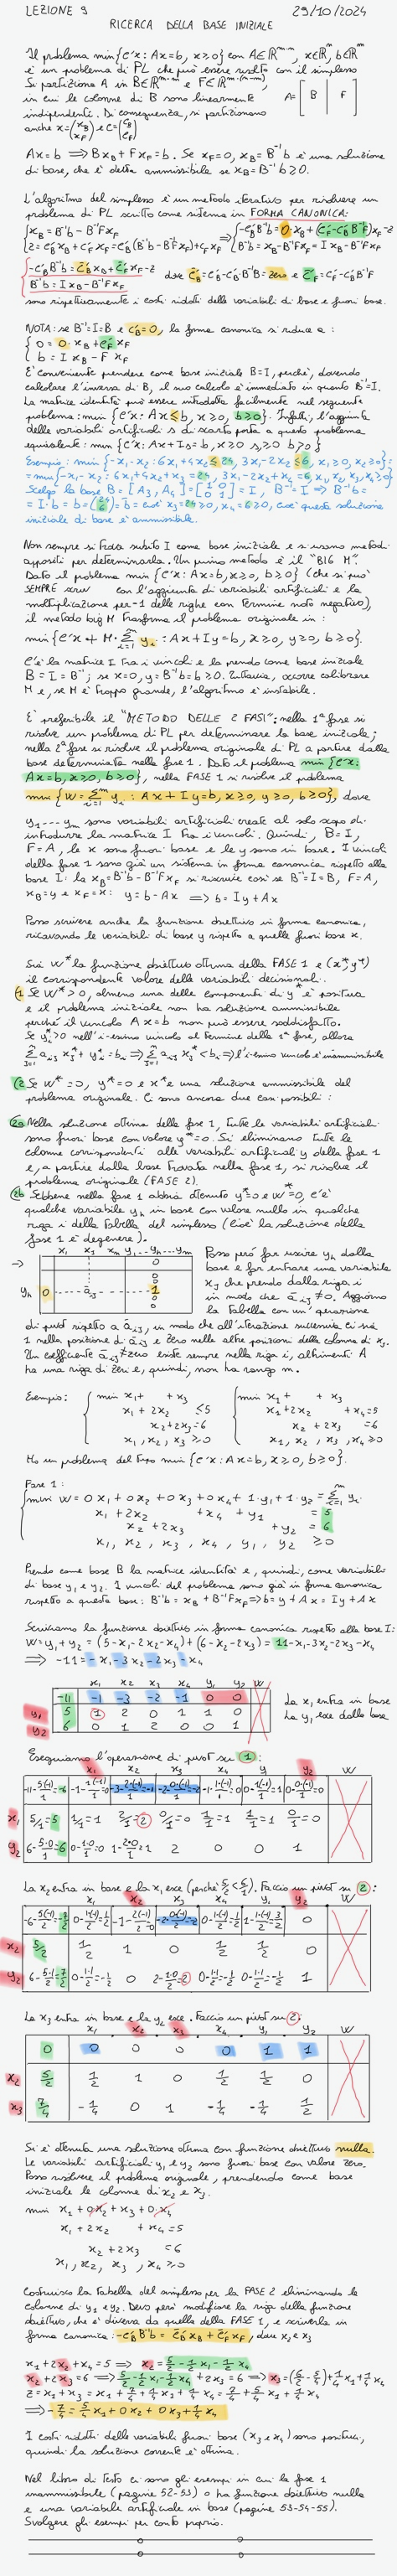 LEZIONE 9 29/10/2024
RICERCA DELLA BASE INIZIALE
Il problema min{c'x: Ax=b, x≥0} con A∈ℝ^m·n, x∈ℝ^n, b∈ℝ^m
è un problema di PL che può essere risolto con il simplesso
Si partiziona A in B∈ℝ^m·m e F∈ℝ^m·(n-m),
in cui le colonne di B sono linearmente
indipendenti. Di conseguenza, si partizionano
anche x=(xB xF) e c=(cB cF)
A=[ B | F ]
Ax=b ⟹ BxB+FxF=b. Se xF=0, xB=B⁻¹b è una soluzione
di base, che è detta ammissibile se xB=B⁻¹b≥0.
L'algoritmo del simplesso è un metodo iterativo per risolvere un
problema di PL scritto come sistema in FORMA CANONICA:
{xB=B⁻¹b-B⁻¹FxF
{z=c'BxB+c'FxF=c'B(B⁻¹b-B⁻¹FxF)+c'FxF ⟹ {-c'BB⁻¹b=0·xB+(c'F-c'BB⁻¹F)xF-z
{B⁻¹b=xB+B⁻¹FxF=IxB+B⁻¹FxF
{-c'BB⁻¹b=c̄'BxB+c̄'FxF-z
B⁻¹b=IxB+B⁻¹FxF
dove c̄'B=c'B-c'BB⁻¹B=zero e c̄'F=c'F-c'BB⁻¹F
sono rispettivamente i costi ridotti delle variabili di base e fuori base.
NOTA: se B⁻¹=I=B e c'B=0, la forma canonica si riduce a:
{0=0·xB+c'FxF
{b=IxB-FxF
È conveniente prendere come base iniziale B=I, perché, dovendo
calcolare l'inversa di B, il suo calcolo è immediato in quanto B⁻¹=I.
La matrice identità può essere introdotta facilmente nel seguente
problema: min{c'x: Ax≤b, x≥0, b≥0}. Infatti, l'aggiunta
delle variabili artificiali s di scarto porta a questo problema
equivalente: min{c'x: Ax+Is=b, x≥0 s≥0 b≥0}
Esempio: min{-x1-x2: 6x1+4x2≤24, 3x1-2x2≤6, x1≥0, x2≥0}=
=min{-x1-x2: 6x1+4x2+x3=24, 3x1-2x2+x4=6, x1,x2,x3,x4≥0}
Scelgo la base B=[A3,A4]=[1 0 0 1]=I, B⁻¹=I ⟹ B⁻¹b=
=I·b=b=(24 6)=b= così x3=24≥0, x4=6≥0, così questa soluzione
iniziale di base è ammissibile.
Non sempre si trova subito I come base iniziale e si usano metodi
appositi per determinarla. Un primo metodo è il "BIG M".
Dato il problema min{c'x: Ax=b, x≥0, b≥0} (che si può
SEMPRE scriv con l'aggiunta di variabili artificiali e la
moltiplicazione per -1 delle righe con termine noto negativo),
il metodo big M trasforma il problema originale in:
min{c'x+M·Σ(i=1,m) yi: Ax+Iy=b, x≥0, y≥0, b≥0}.
C'è la matrice I tra i vincoli e la prendo come base iniziale
B=I=B⁻¹; se x=0, y=B⁻¹b=b≥0. Tuttavia, occorre calibrare
M e, se M è troppo grande, l'algoritmo è instabile.
È preferibile il "METODO DELLE 2 FASI": nella 1ª fase si
risolve un problema di PL per determinare la base iniziale;
nella 2ª fase si risolve il problema originale di PL a partire dalla
base determinata nella fase 1. Dato il problema min{c'x:
Ax=b, x≥0, b≥0}, nella FASE 1 si risolve il problema
min{W=Σ(i=1,m) yi: Ax+Iy=b, x≥0, y≥0, b≥0}, dove
y1...ym sono variabili artificiali create al solo scopo di
introdurre la matrice I tra i vincoli. Quindi, B=I,
F=A, le x sono fuori base e le y sono in base. I vincoli
della fase 1 sono già un sistema in forma canonica rispetto alla
base I: la xB=B⁻¹b-B⁻¹FxF si riscrive così se B⁻¹=I=B, F=A,
xB=y e xF=x: y=b-Ax ⟹ b=Iy+Ax
Posso scrivere anche la funzione obiettivo in forma canonica,
ricavando le variabili di base y rispetto a quelle fuori base x.
Sia W* la funzione obiettivo ottima della FASE 1 e (x*,y*)
il corrispondente valore delle variabili decisionali.
1 Se W*>0, almeno una delle componenti di y* è positiva
e il problema iniziale non ha soluzione ammissibile
perché il vincolo Ax=b non può essere soddisfatto.
Se yi*>0 nell'i-esimo vincolo al termine della 1ª fase, allora
Σ(j=1,n) aij xj*+yi*=bi ⟹ Σ(j=1,n) aij xj*<bi ⟹ l'i-esimo vincolo è inammissibile
2 Se W*=0, y*=0 e x* è una soluzione ammissibile del
problema originale. Ci sono ancora due casi possibili:
2a Nella soluzione ottima della fase 1, tutte le variabili artificiali
sono fuori base con valore y*=0. Si eliminano tutte le
colonne corrispondenti alle variabili artificiali y della fase 1
e, a partire dalla base trovata nella fase 1, si risolve il
problema originale (FASE 2).
2b Sebbene nella fase 1 abbia ottenuto y*=0 e W*=0, c'è
qualche variabile yh in base con valore nullo in qualche
riga i della tabella del simplesso (cioè la soluzione della
fase 1 è degenere).
→ x1 xj xn y1...yh...ym
0
yh 0 āij 1
0
0
Posso però far uscire yh dalla
base e far entrare una variabile
xj che prendo dalla riga i
in modo che āij≠0. Aggiorno
la tabella con un'operazione
di pivot rispetto a āij, in modo che all'iterazione successiva ci sia
1 nella posizione di āij e zero nelle altre posizioni della colonna di xj.
Un coefficiente āij≠zero esiste sempre nella riga i, altrimenti A
ha una riga di zeri e, quindi, non ha rango m.
Esempio: {min x1+ +x3 {min x1+ +x3
x1+2x2 ≤5 x1+2x2 +x4=5
x2+2x3=6 x2+2x3 =6
x1,x2,x3≥0 x1,x2,x3,x4≥0
Ho un problema del tipo min{c'x: Ax=b, x≥0, b≥0}.
Fase 1:
{min W=0x1+0x2+0x3+0x4+1·y1+1·y2=Σ(i=1,m) yi
x1+2x2 +x4+y1 =5
x2+2x3 +y2=6
x1, x2, x3, x4, y1, y2 ≥0
Prendo come base B la matrice identità e, quindi, come variabili
di base y1 e y2. I vincoli del problema sono già in forma canonica
rispetto a questa base: B⁻¹b=xB+B⁻¹FxF ⟹ b=y+Ax=Iy+Ax
Scriviamo la funzione obiettivo in forma canonica rispetto alla base I:
W=y1+y2=(5-x1-2x2-x4)+(6-x2-2x3)=11-x1-3x2-2x3-x4
⟹ -11=-x1-3x2-2x3-x4
x1 x2 x3 x4 y1 y2 W
-11 -1 -3 -2 -1 0 0
y1 5 1 2 0 1 1 0
y2 6 0 1 2 0 0 1
La x1 entra in base
La y1 esce dalla base
Eseguiamo l'operazione di pivot su 1:
x1 x2 x3 x4 y1 y2 W
-11-5(-1)/1=-6 -1-1(-1)/1=0 -3-2(-1)/1=-1 -2-0(-1)/1=-2 -1-1(-1)/1=0 0-1(-1)/1=1 0-0(-1)/1=0
x1 5/1=5 1/1=1 2/1=2 0/1=0 1/1=1 1/1=1 0/1=0
y2 6-5·0/1=6 0-1·0/1=0 1-2·0/1=1 2 0 0 1
La x2 entra in base e la x1 esce (perché 5/2<6/1). Faccio un pivot su 2:
x1 x2 x3 x4 y1 y2 W
-6-5(-1)/2=-7/2 0-1(-1)/2=1/2 -1-2(-1)/2=0 -2-0(-1)/2=-2 0-1(-1)/2=1/2 1-1(-1)/2=3/2 0
x2 5/2 1/2 1 0 1/2 1/2 0
y2 6-5·1/2=7/2 0-1·1/2=-1/2 0 2-1·0/2=2 0-1·1/2=-1/2 0-1·1/2=-1/2 1
La x3 entra in base e la y2 esce. Faccio un pivot su 2:
x1 x2 x3 x4 y1 y2 W
0 0 0 0 0 1 1
x2 5/2 1/2 1 0 1/2 1/2 0
x3 7/4 -1/4 0 1 -1/4 -1/4 1/2
Si è ottenuta una soluzione ottima con funzione obiettivo nulla.
Le variabili artificiali y1 e y2 sono fuori base con valore zero.
Posso risolvere il problema originale, prendendo come base
iniziale le colonne di x2 e x3.
min x1+0x2+x3+0·x4
x1+2x2 +x4=5
x2+2x3 =6
x1, x2, x3, x4≥0
Costruisco la tabella del simplesso per la FASE 2 eliminando le
colonne di y1 e y2. Devo però modificare la riga della funzione
obiettivo, che è diversa da quella della FASE 1, e scriverla in
forma canonica: -c'BB⁻¹b=c̄'BxB+c̄'FxF, dove x2 e x3
x1+2x2+x4=5 ⟹ x2=5/2-1/2x1-1/2x4
x2+2x3=6 ⟹ 5/2-1/2x1-1/2x4+2x3=6 ⟹ x3=(6/2-5/4)+1/4x1+1/4x4
z=x1+x3=x1+7/4+1/4x1+1/4x4=7/4+5/4x1+1/4x4
⟹ -7/4=5/4x1+0x2+0x3+1/4x4
I costi ridotti delle variabili fuori base (x1 e x4) sono positivi,
quindi la soluzione corrente è ottima.
Nel libro di testo ci sono gli esempi in cui la fase 1
inammissibile (pagine 52-53) o ha funzione obiettivo nulla
e una variabile artificiale in base (pagine 53-54-55).
Svolgere gli esempi per conto proprio.